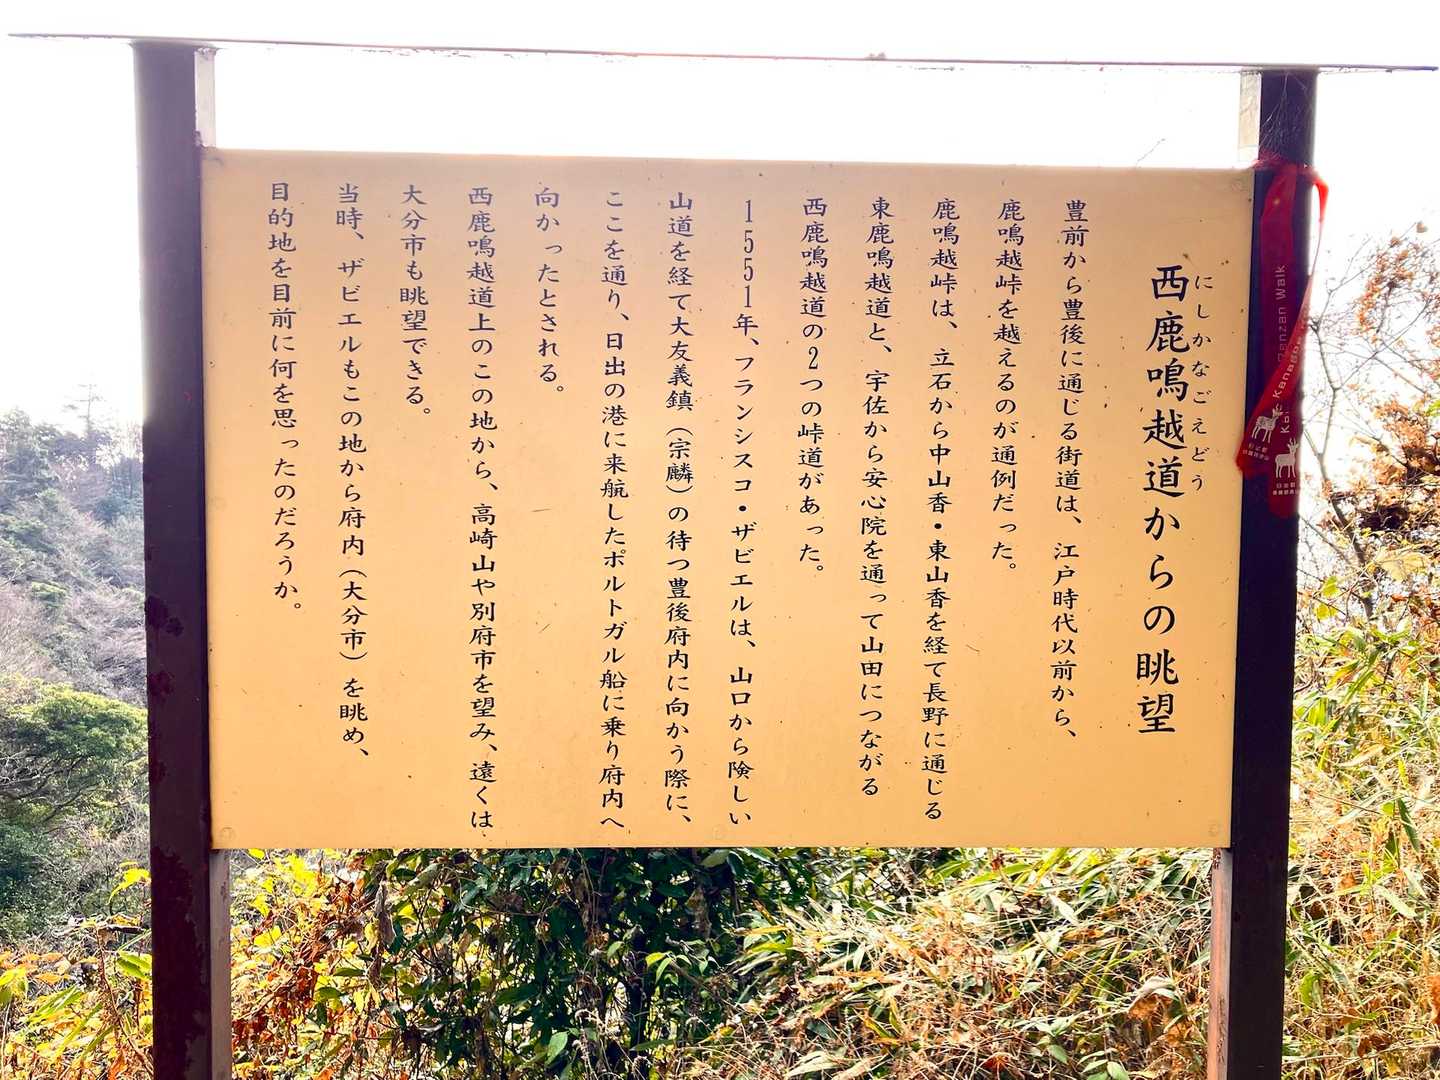 にしかなごえどう
西鹿鳴越道からの眺望
豊前から豊後に通じる街道は、江戸時代以前から、
鹿鳴越峠を越えるのが通例だった。
鹿鳴越峠は、立石から中山香・東山香を経て長野に通じる
東鹿鳴越道と、宇佐から安心院を通って山田につながる
西鹿鳴越道の2つの峠道があった。
1551年、フランシスコ・ザビエルは、山口から険しい
山道を経て大友義鎮（宗麟）の待つ豊後府内に向かう際に、
ここを通り、日出の港に来航したポルトガル船に乗り府内へ
向かったとされる。
西鹿鳴越道上のこの地から、高崎山や別府市を望み、遠くは
大分市も眺望できる。
当時、ザビエルもこの地から府内（大分市）を眺め、
目的地を目前に何を思ったのだろうか。
Walk